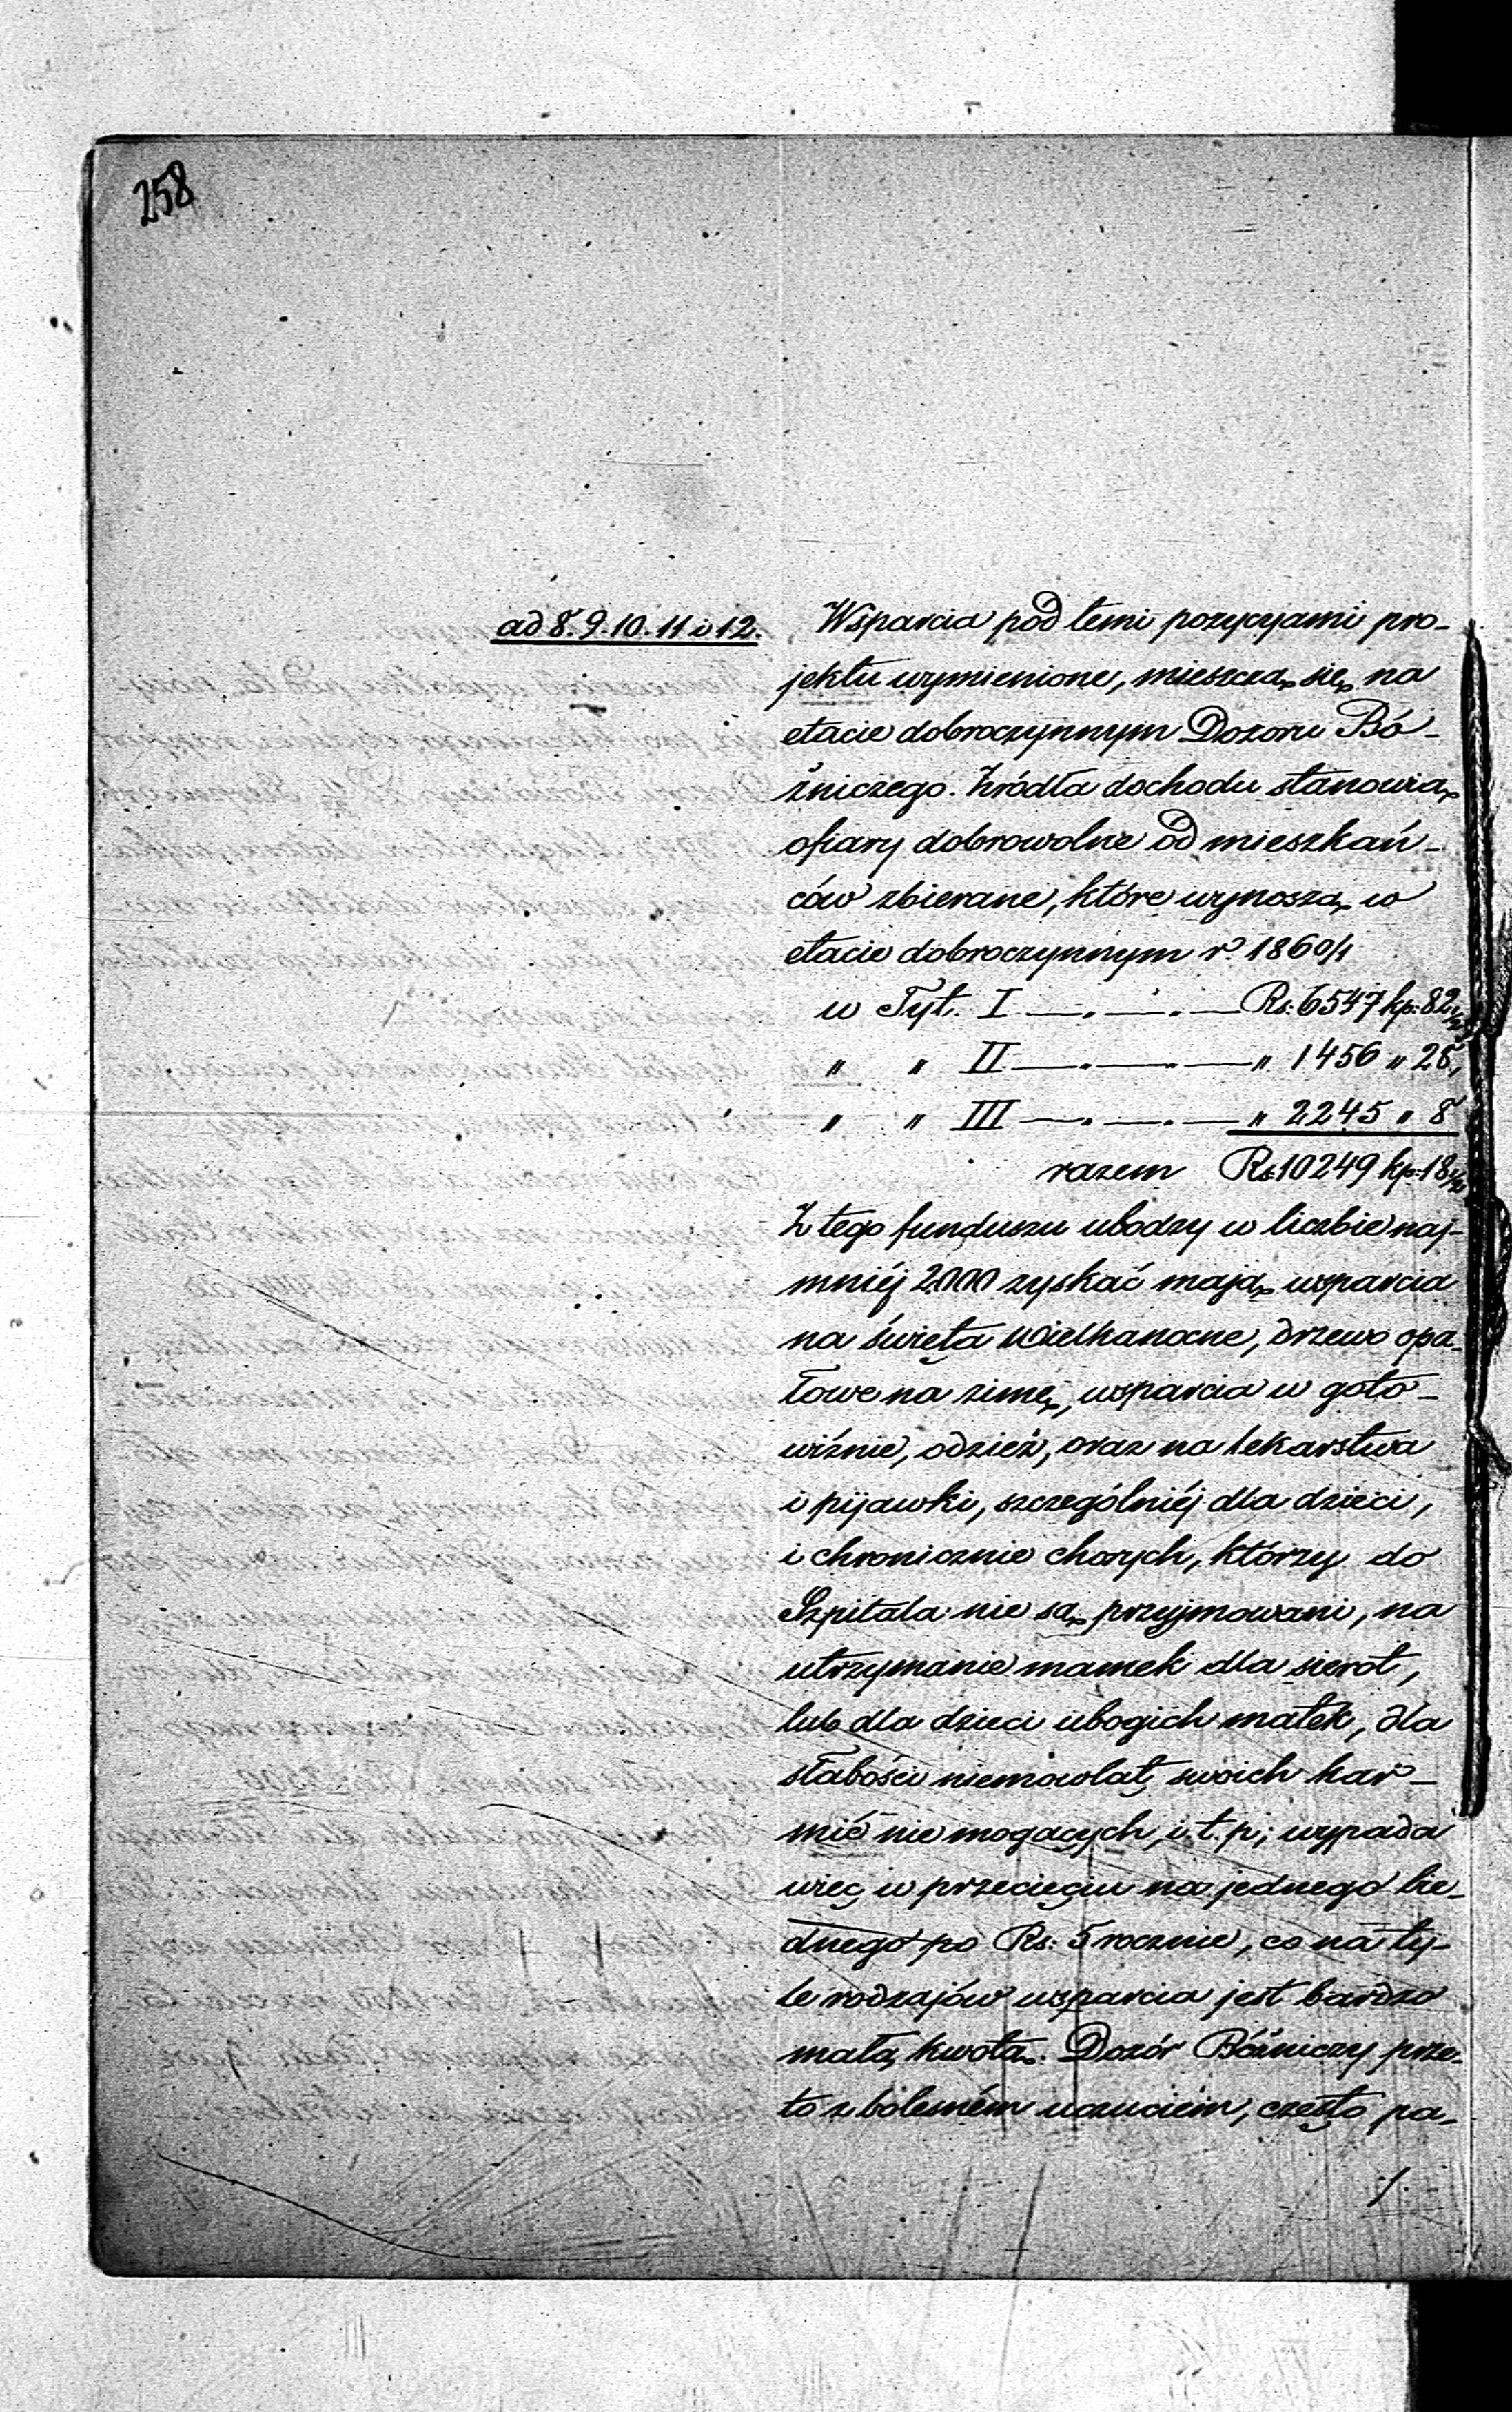 258
ad 8. 9. 10. 11 i 12.
Wsparcia pod temi pozycyami pro-
jektu wymienione, mieszczą się na
etacie dobroczynnym Dozoru Bó-
źniczego. Źródła dochodu stanowią
ofiary dobrowolne od mieszkań-
ców zbierane, które wynoszą w
etacie dobroczynnym r. 1860/1
w Tyt. I — . — . — Rs: 6547 kp: 82
" " II — . — . — " 1456 " 28,
" " III — . — . — " 2245 " 8
razem Rs 10249 kp: 18
Z tego funduszu ubodzy w liczbie naj-
mniéj 2000 zyskać mają wsparcia
na święta wielkanocne, drzewo opa-
łowe na zimę, wsparcia w goto-
wiźnie, odzież, oraz na lekarstwa
i pijawki, szczególniéj dla dzieci,
i chronicznie chorych, którzy do
Szpitala nie są przyjmowani, na
utrzymanie mamek dla sierot,
lub dla dzieci ubogich matek, dla
słabości niemowląt swoich kar-
mić nie mogących, i. t. p; wypada
więc w przecięciu na jednego bie-
dnego po Rs: 5 rocznie, co na ty-
le rodzajów wsparcia jest bardzo
małą kwotą. Dozór Bóżniczy prze-
to z bolesném uczuciém, często pa-
./.